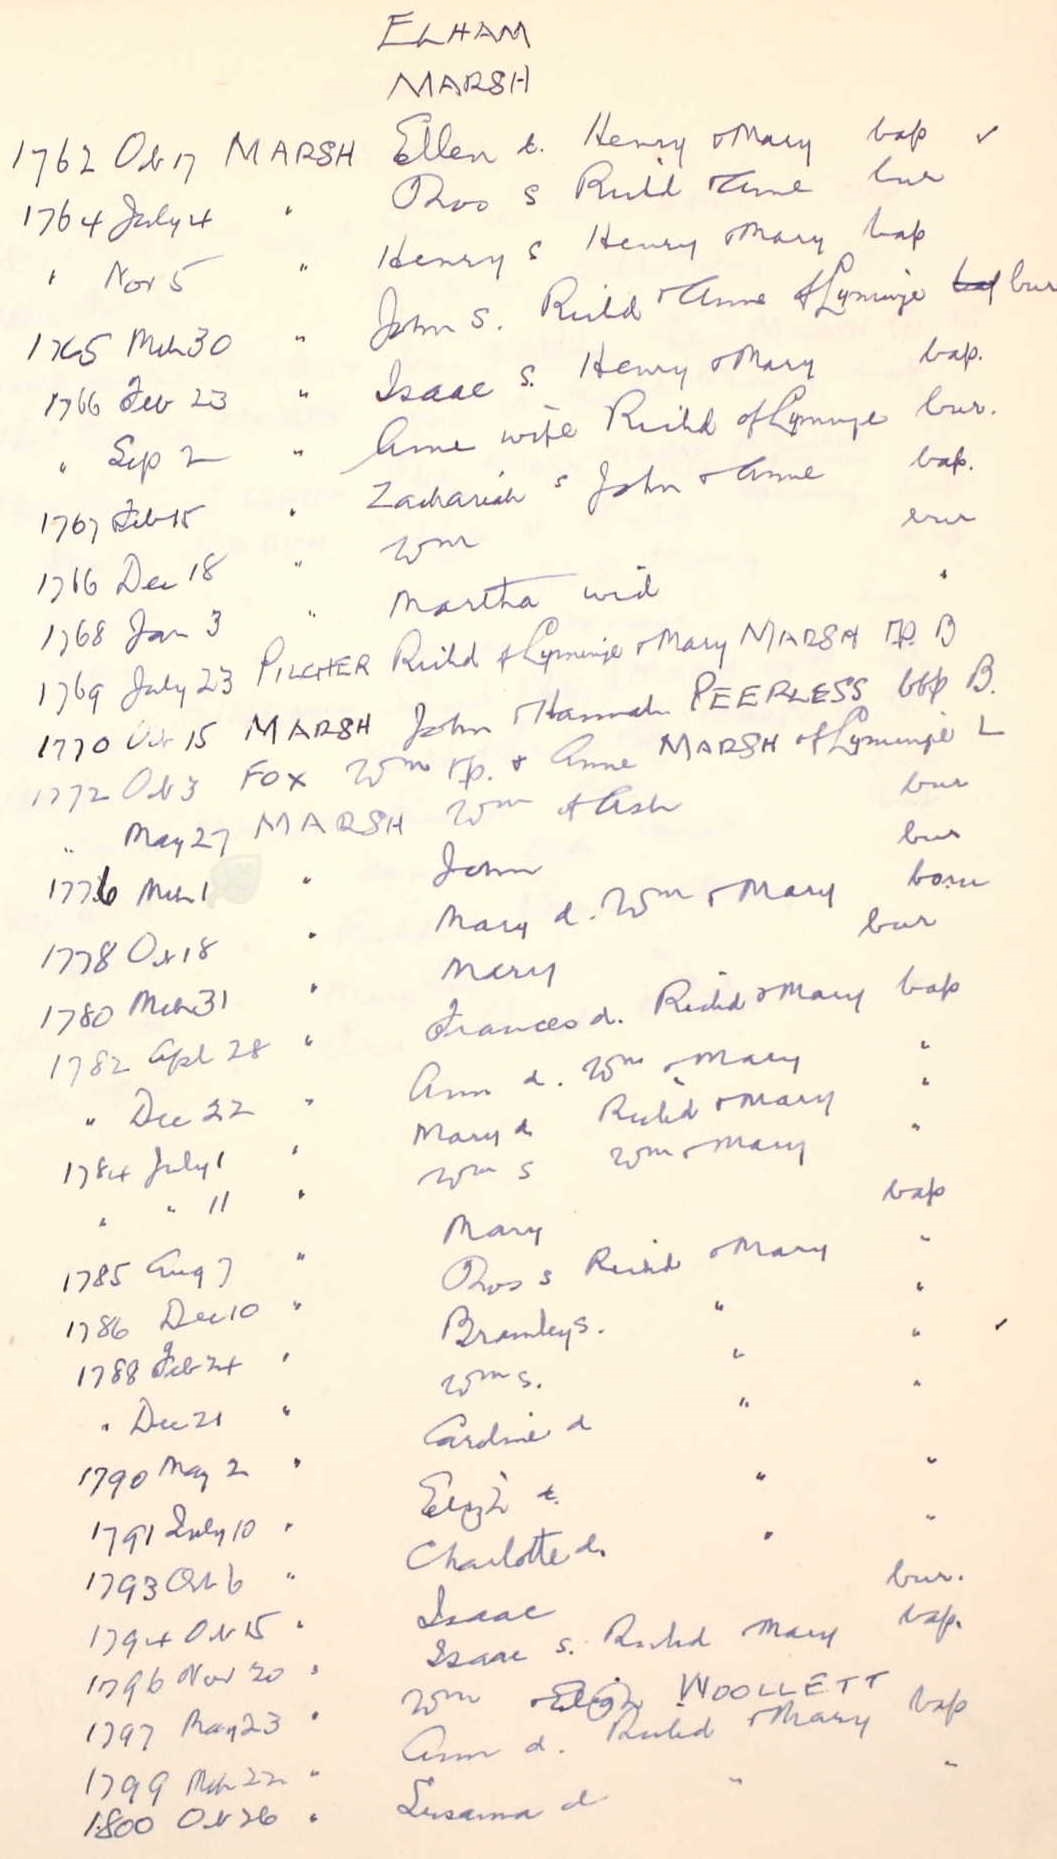 ELHAM
MARSH
1762 Oct 17 MARSH Ellen d. Henry & Mary bap ✓
1764 July 4 " Thos s Richd & Anne bur
" Nov 5 " Henry s Henry & Mary bap
1765 Mch 30 " John s. Richd & Anne of Lyminge bur
1766 Feb 23 " Isaac s. Henry & Mary bap.
" Sep 2 " Anne wife Richd of Lyminge bur.
1767 Feb 15 " Zachariah s John & Anne bap.
1766 Dec 18 " Wm bur
1768 Jan 3 " Martha wid "
1769 July 23 PILCHER Richd of Lyminge & Mary MARSH tp. B
1770 Oct 15 MARSH John & Hannah PEERLESS botp B.
1772 Oct 3 FOX Wm tp. & Anne MARSH of Lyminge L
" May 27 MARSH Wm of Ash bur
1776 Mch 1 " John bur
1778 Oct 18 " Mary d. Wm & Mary born
1780 Mch 31 " Mary bur
1782 Apl 28 " Frances d. Richd & Mary bap
" Dec 22 " Ann d. Wm & Mary "
1784 July 1 " Mary d. Richd & Mary "
" " 11 " Wm s Wm & Mary "
1785 Aug 7 " Mary bap
1786 Dec 10 " Thos s Richd & Mary "
1788 Feb 24 " Bramley s. " "
" Dec 21 " Wm s. " " ✓
1790 May 2 " Caroline d " "
1791 July 10 " Eliz'h d. " "
1793 Oct 6 " Charlotte d. " "
1794 Oct 15 " Isaac bur.
1796 Nov 20 " Isaac s. Richd Mary bap.
1797 May 23 " Wm & Eliz'h WOOLLETT
1799 Mch 22 " Ann d. Richd & Mary bap
1800 Oct 26 " Susanna d " "